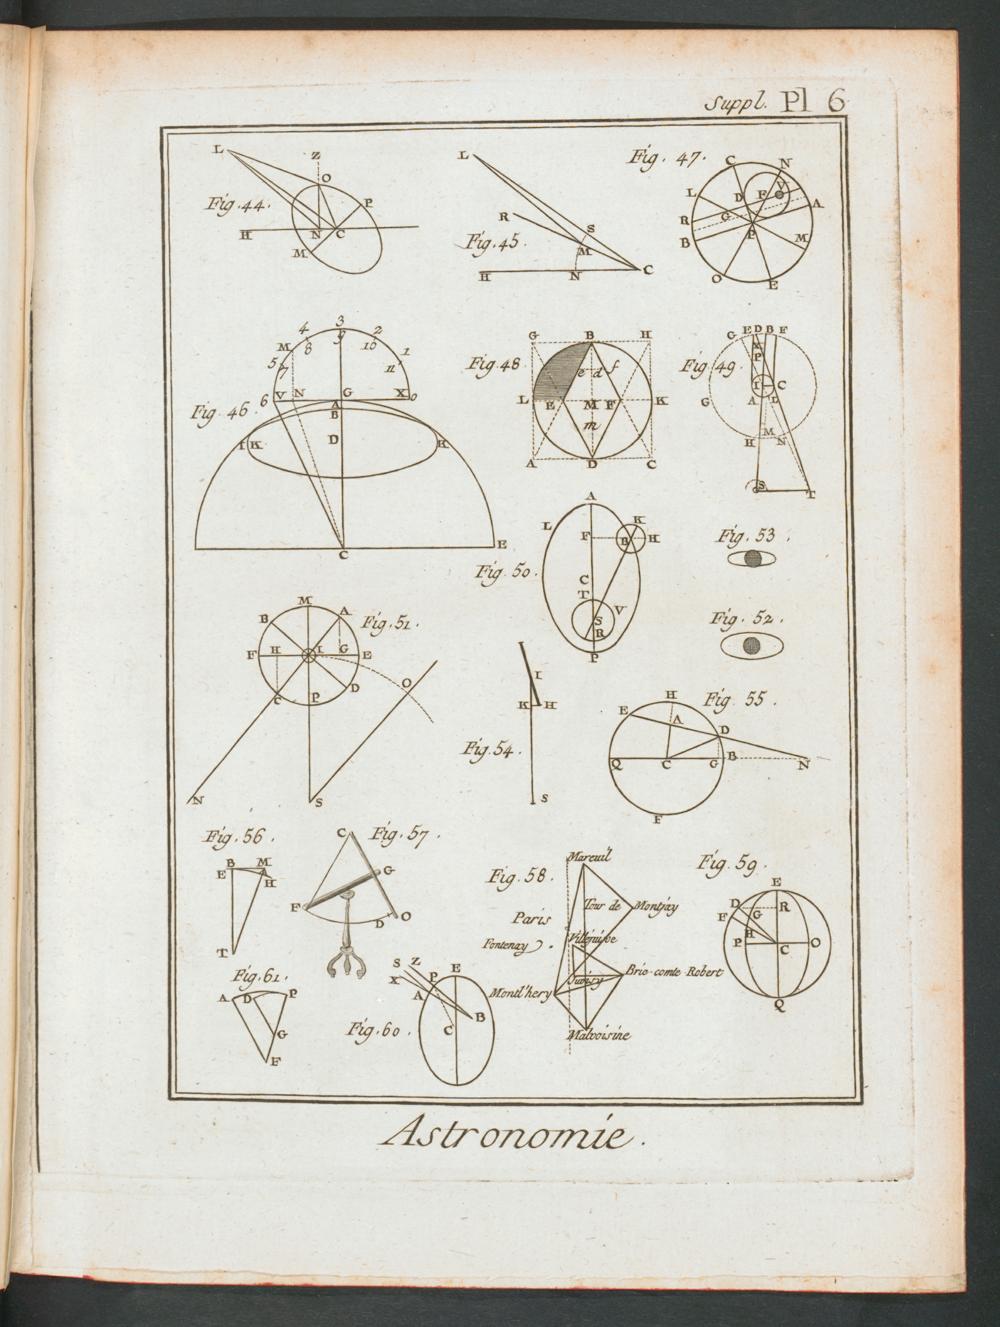 Suppl. Pl 6
Fig. 44.
L
Z
O
P
H
N
C
M
Fig. 45.
L
R
S
M
H
N
C
Fig. 47.
C
N
L
D
F
V
A
R
G
B
P
M
O
E
Fig. 46.
3
4
9
2
M
8
10
1
5
7
11
6
V
N
G
X
0
A
B
I
K
D
K
C
E
Fig. 48
G
B
H
e
d
f
L
E
M
F
K
m
A
D
C
Fig. 49.
G
E
D
B
F
X
P
I
C
A
L
G
M
H
N
S
T
Fig. 50.
A
L
K
F
B
H
C
T
V
S
R
P
Fig. 53.
Fig. 52.
Fig. 51.
M
B
A
F
H
I
G
E
C
P
D
O
N
S
Fig. 54.
I
K
H
S
Fig. 55.
H
E
A
D
Q
C
G
B
N
F
Fig. 56.
B
M
E
H
T
Fig. 57.
C
G
F
D
O
Fig. 58.
Mareuil
Tour de Montjay
Paris
Villejuive
Fontenay
Brie-comte Robert
Juvisy
Montl'hery
Malvoisine
Fig. 59.
E
D
R
F
G
H
P
C
O
Q
Fig. 61.
A
D
P
G
F
Fig. 60.
S
Z
P
E
X
A
C
B
Astronomie.